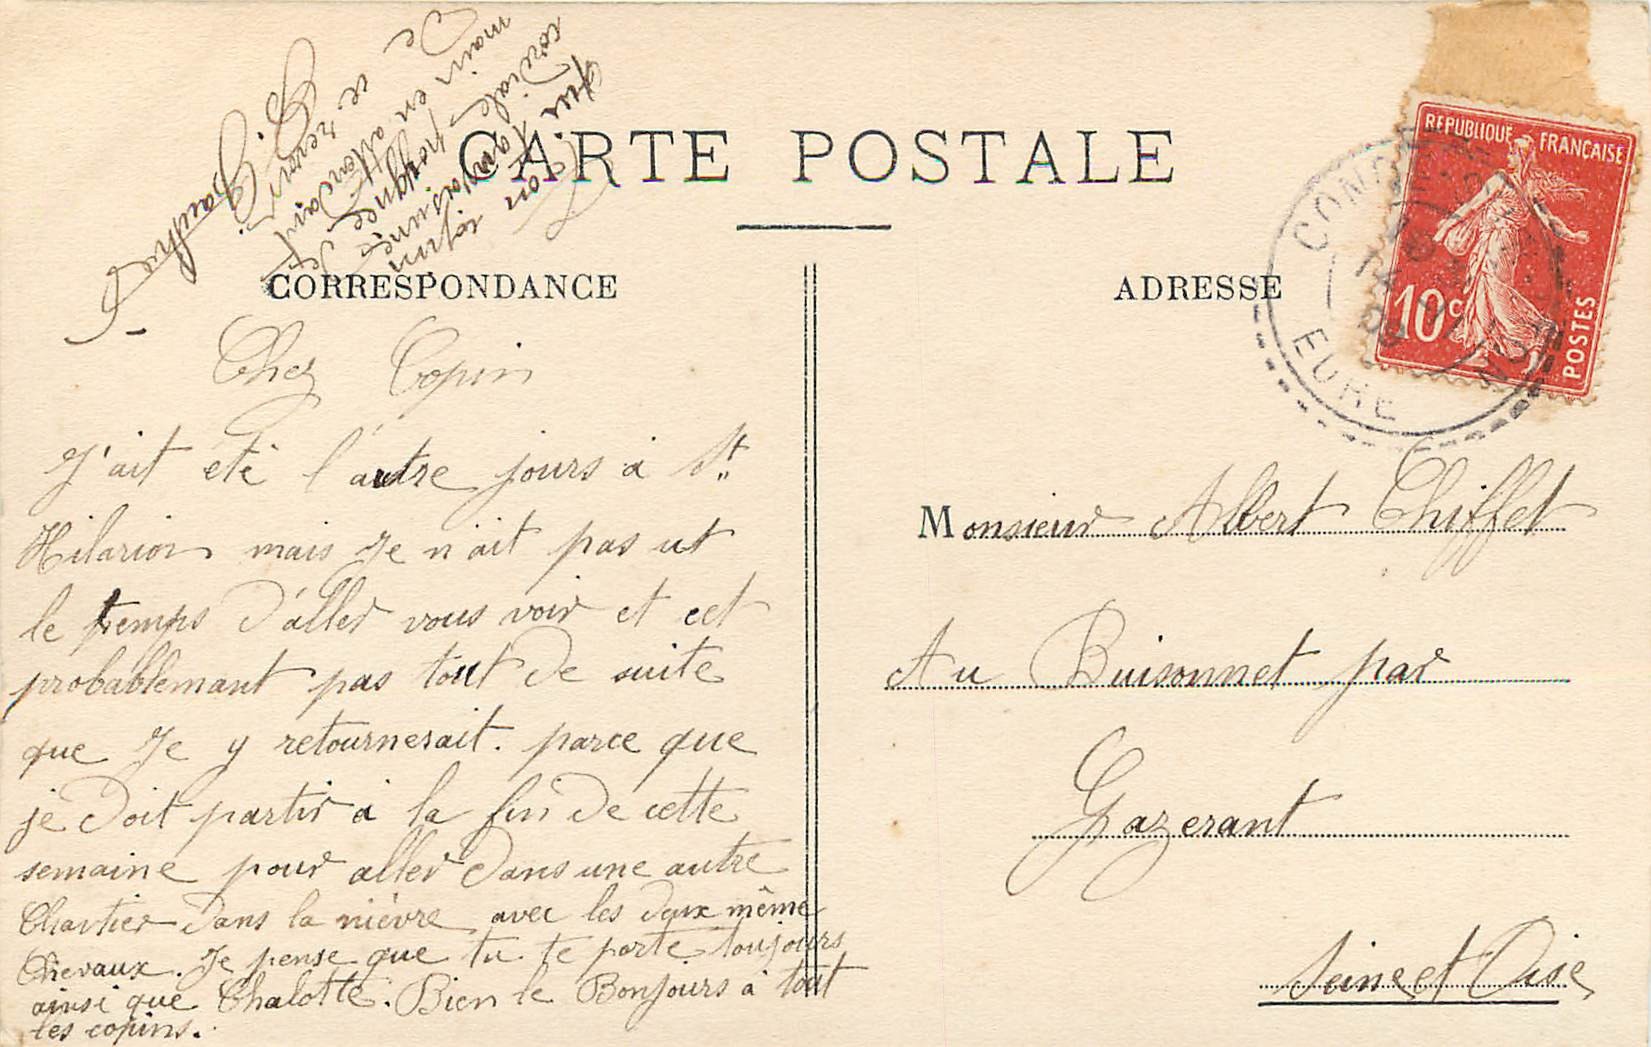 CARTE POSTALE
CORRESPONDANCE
Chez Copin
J'ait été l'autre jours à St.
Hilarion mais Je n'ait pas ut
le temps d'aller vous voir et cet
probablemant pas tout de suite
que Je y retournerait. parce que
je doit partir à la fin de cette
semaine pour aller dans une autre
Chartier dans la nièvre avec les deux même
Chevaux. Je pense que tu te porte toujours
ainsi que Chalotte. Bien le Bonjours à tout
les copins.
Ton copin
qui t'envois une
cordiale poignée de
main en attendant
de ce revoir
G. Gauthié
ADRESSE
REPUBLIQUE FRANÇAISE
10c
POSTES
EURE
Monsieur Albert Chiffet
Au Buisonnet par
Gazerant
Seine et Oise